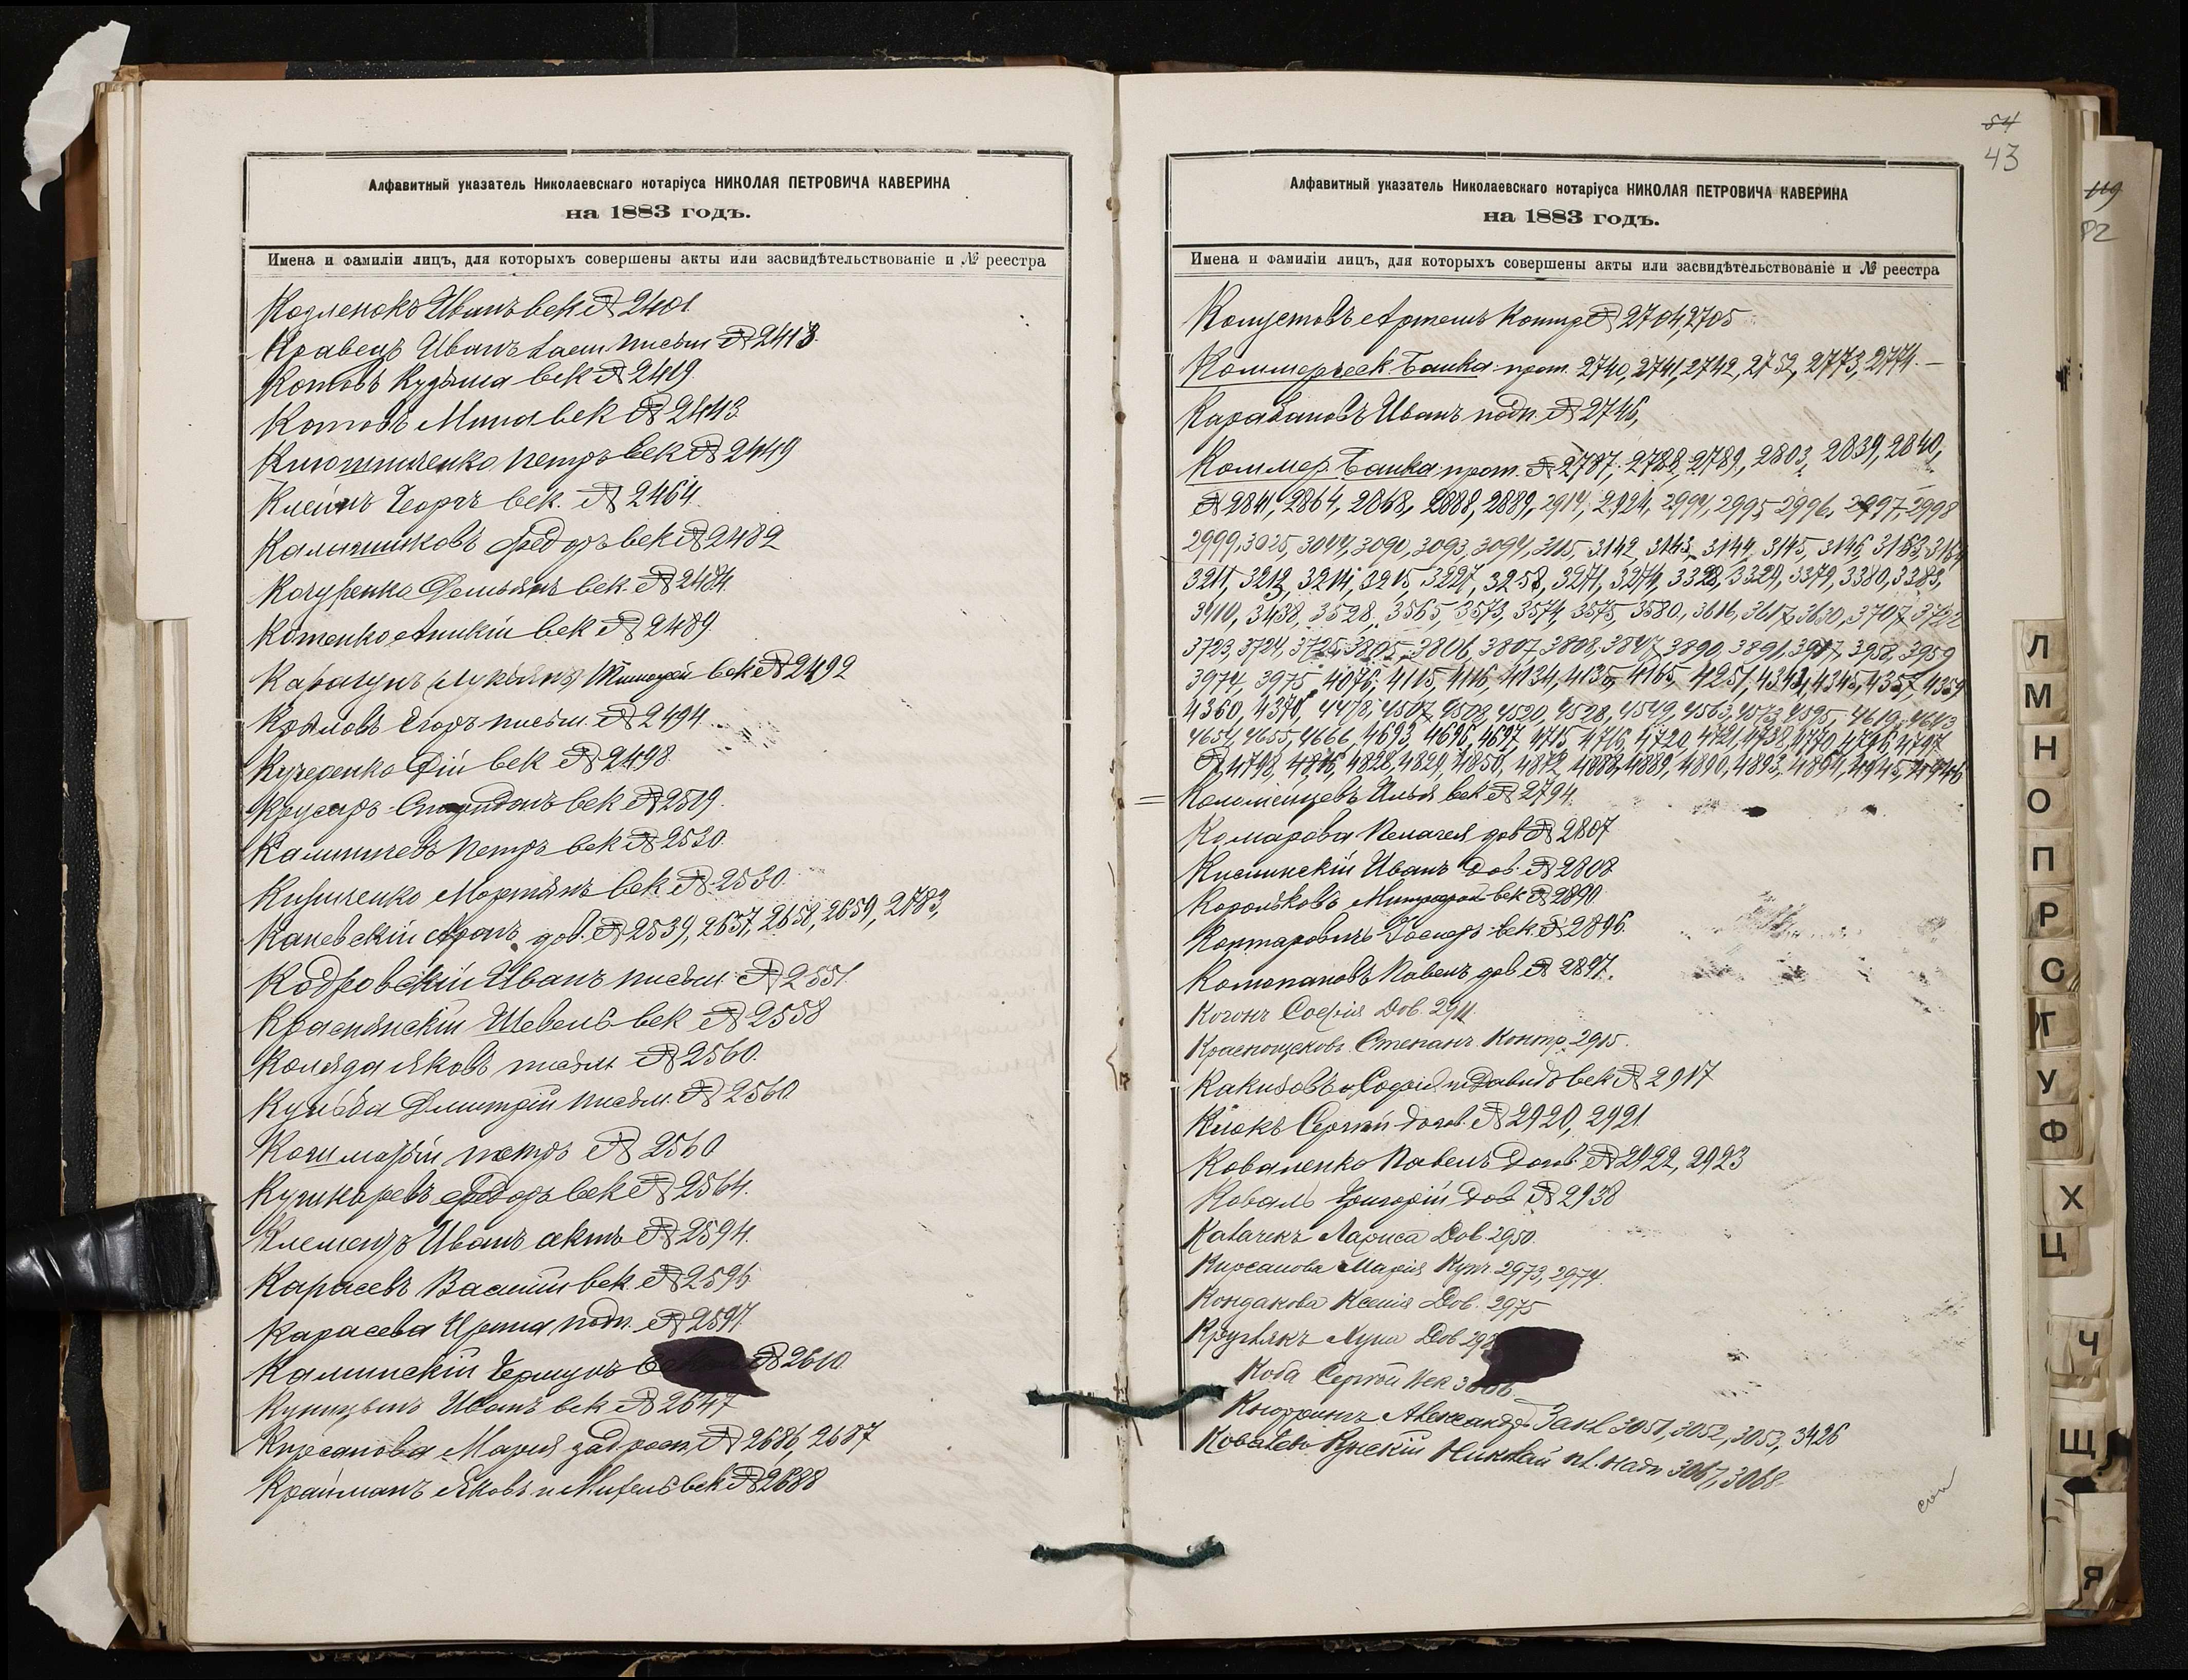 Алфавитный указатель Николаевскаго нотаріуса НИКОЛАЯ ПЕТРОВИЧА КАВЕРИНА
на 1883 годъ.
Имена и фамиліи лицъ, для которыхъ совершены акты или засвидѣтельствованіе и № реестра
Козленокъ Иванъ век № 2401
Кравецъ Иванъ письм № 2413
Котовъ Кузьма век № 2419
Котовъ Мина век № 2443
Клюшниченко Петръ век № 2449
Клейнъ Георгъ век. № 2464
Калашниковъ Федоръ век № 2482
Кочубенко Демьянъ век. № 2484
Котенко Аникій век № 2489
Карагунъ (Лукьянъ) Тимофей век № 2492
Крыловъ Егоръ письм. № 2494
Кучеренко Фій век № 2498
Крусаръ Спиридонъ век № 2519
Калиничевъ Петръ век № 2520
Кириченко Мартынъ век № 2530
Каневскій Аронъ дов. № 2539, 2657, 2658, 2659, 2783,
Кодровскій Иванъ письм № 2551
Краснянскій Шевель век № 2558
Коляда Яковъ письм № 2560
Кульба Дмитрій письм. № 2560
Петръ № 2560
Кушнаревъ Федоръ век № 2564.
Клеменцъ Иванъ актъ № 2594.
Карасевъ Василій век. № 2596
Карасева Ирина подп. № 2597.
Калинскій № 2610
Куницынъ Иванъ век № 2647
Кирсанова Марія № 2686, 2687
Крайманъ Яковъ и век № 2688
54
43
Алфавитный указатель Николаевскаго нотаріуса НИКОЛАЯ ПЕТРОВИЧА КАВЕРИНА
на 1883 годъ.
Имена и фамиліи лицъ, для которыхъ совершены акты или засвидѣтельствованіе и № реестра
Капустовъ Артемъ контр № 2704, 2705
Коммерческ Банка прот. 2740, 2741, 2742, 2752, 2773, 2774. –
Карабановъ Иванъ подп. № 2746,
Коммер. Банка прот. № 2787, 2788, 2789, 2803, 2839, 2840,
№ 2841, 2864, 2868, 2888, 2889, 2914, 2924, 2994, 2995, 2996, 2997, 2998
2999, 3025, 3044, 3090, 3093, 3094, 3115, 3142, 3143, 3144, 3145, 3146, 3163, 3164
3211, 3212, 3214, 3215, 3227, 3258, 3271, 3274, 3328, 3329, 3379, 3380, 3383,
3410, 3438, 3528, 3565, 3573, 3574, 3575, 3580, 3616, 3617, 3630, 3707, 3722
3723, 3724, 3725, 3805, 3806, 3807, 3808, 3847, 3890, 3891, 3917, 3958, 3959
3974, 3975, 4076, 4115, 4116, 4134, 4135, 4165, 4251, 4343, 4345, 4357, 4359
4360, 4370, 4478, 4507, 4508, 4520, 4528, 4549, 4563, 4573, 4595, 4619, 4643
4654, 4655, 4666, 4693, 4696, 4697, 4715, 4716, 4720, 4721, 4738, 4770, 4796, 4797
№ 4798, 4816, 4828, 4829, 4850, 4872, 4888, 4889, 4890, 4893, 4894, 4945, 4946
Коломейцевъ Илья век № 2794.
Комарова Пелагея дов № 2807
Кислинскій Иванъ дов. № 2808
Корольковъ Митрофан век № 2890
Контаровичъ Іосифъ век. № 2896
Павелъ дов № 2897.
Коганъ Софія Дов. 2911.
Краснощековъ Степанъ Контр 2915.
Софія и Давидъ век № 2917
Сергѣй догов. № 2920, 2921
Коваленко Павелъ догов. № 2922, 2923
Коваль Григорій дов № 2938
Калачекъ Лариса Дов. 2950.
Кирсанова Марія Купч. 2973, 2974.
Кондакова Ксенія Дов. 2975
Кругликъ Дов.
Коба Сергѣй Век
Александръ 3051, 3052, 3053, 3426
Николай 3067, 3068.
119
82
Л
М
Н
О
П
Р
С
Т
У
Ф
Х
Ц
Ч
Щ
Я